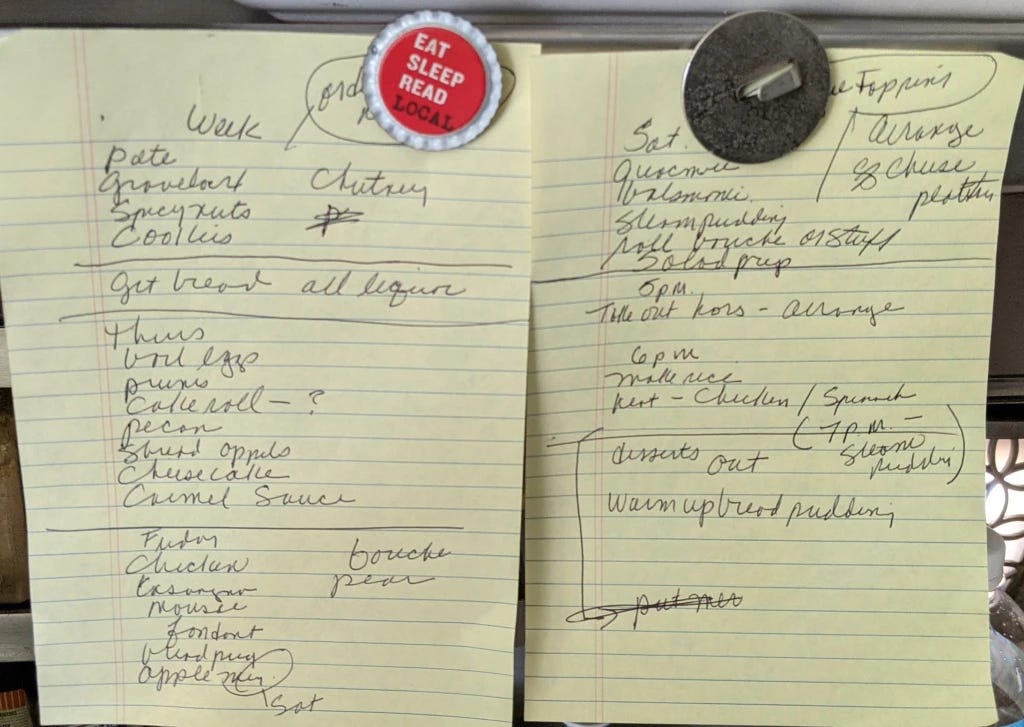 EAT
SLEEP
READ
LOCAL
Week
Pate
Chutney
Spicy nuts
Cookies
Get bread all liquor
Thurs
boil eggs
prunes
Cake roll - ?
pecan
Shred appels
Cheesecake
Carmel Sauce
Friday
Chicken bouche
pear
mousse
fondant
apple
Sat
Toppins
Sat.
Arrange
Cheese
steam pudding
roll bouche or stuff
Salad prep
5 p.m.
Take out hors - arrange
6 p m
make rice
heat - Chicken / Spinach
(7 p.m. -
Steam
pudding)
desserts out
Warm up bread pudding